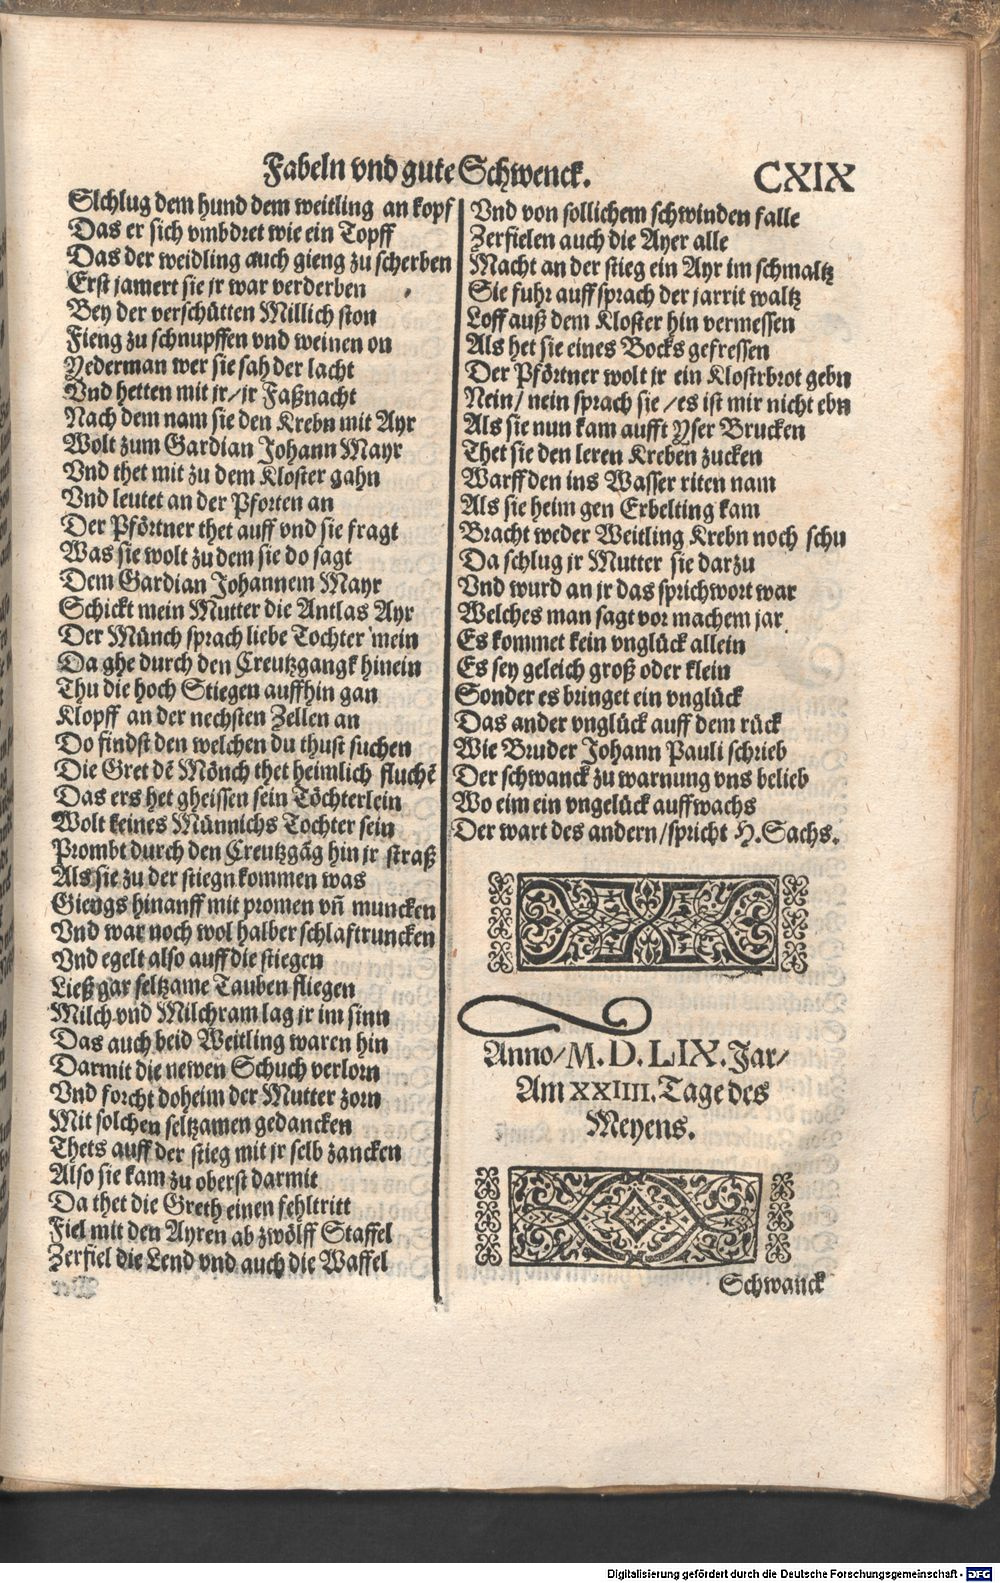 Fabeln vnd gute Schwenck. CXIX
Slchlug dem hund dem weitling an kopf
Das er sich vmbdret wie ein Topff
Das der weidling auch gieng zu scherben
Erst jamert sie jr war verderben
Bey der verschütten Millich ston
Fieng zu schnupffen vnd weinen on
Yederman wer sie sah der lacht
Vnd hetten mit jr/jr Faßnacht
Nach dem nam sie den Krebn mit Ayr
Wolt zum Gardian Johann Mayr
Vnd thet mit zu dem Kloster gahn
Vnd leutet an der Pforten an
Der Pförtner thet auff vnd sie fragt
Was sie wolt zu dem sie do sagt
Dem Gardian Johannem Mayr
Schickt mein Mutter die Antlas Ayr
Der Münch sprach liebe Tochter mein
Da ghe durch den Creutzgangk hinein
Thu die hoch Stiegen auffhin gan
Klopff an der nechsten Zellen an
Do findst den welchen du thust suchen
Die Gret dē Mönch thet heimlich fluchē
Das ers het gheissen sein Töchterlein
Wolt keines Münnichs Tochter sein
Prombt durch den Creutzgāg hin jr straß
Als sie zu der stiegn kommen was
Giengs hinanff mit promen vñ muncken
Vnd war noch wol halber schlaftruncken
Vnd egelt also auff die stiegen
Ließ gar seltzame Tauben fliegen
Milch vnd Milchram lag jr im sinn
Das auch beid Weitling waren hin
Darmit die newen Schuch verlorn
Vnd forcht doheim der Mutter zorn
Mit solchen seltzamen gedancken
Thets auff der stieg mit jr selb zancken
Also sie kam zu oberst darmit
Da thet die Greth einen fehltritt
Fiel mit den Ayren ab zwölff Staffel
Zerfiel die Lend vnd auch die Waffel
Vnd von sollichem schwinden falle
Zerfielen auch die Ayer alle
Macht an der stieg ein Ayr im schmaltz
Sie fuhr auff sprach der jarrit waltz
Loff auß dem Kloster hin vermessen
Als het sie eines Bocks gefressen
Der Pförtner wolt jr ein Klostrbrot gebn
Nein/ nein sprach sie/es ist mir nicht ebn
Als sie nun kam aufft Yser Brucken
Thet sie den leren Kreben zucken
Warff den ins Wasser riten nam
Als sie heim gen Erbelting kam
Bracht weder Weitling Krebn noch schu
Da schlug jr Mutter sie darzu
Vnd wurd an jr das sprichwort war
Welches man sagt vor machem jar
Es kommet kein vnglück allein
Es sey geleich groß oder klein
Sonder es bringet ein vnglück
Das ander vnglück auff dem rück
Wie Bruder Johann Pauli schrieb
Der schwanck zu warnung vns belieb
Wo eim ein vngelück auffwachs
Der wart des andern/spricht H. Sachs.
Anno/M. D. LIX. Jar/
Am XXIIII. Tage des
Meyens.
Schwanck
Digitalisierung gefördert durch die Deutsche Forschungsgemeinschaft - DFG